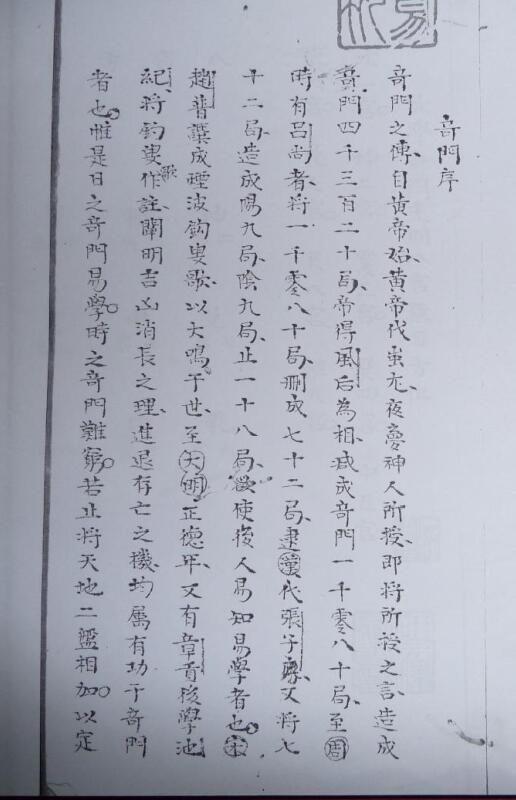 奇門序
奇門之傳自黃帝始黃帝伐蚩尤夜夢神人所授即將所授之言造成
奇門四千三百二十局帝得風后為相减成奇門一千零八十局至周
時有吕尚者将一千零八十局刪成七十二局逮漢代張子房又將七
十二局造成陽九局陰九局止一十八局欲使後人易知易學者也宋
趙普譔成煙波鈎叟歌以大鳴于世至大明正德年又有章貢後學池
紀将鈎叟歌作註闡明吉凶消長之理進退存亡之機均属有功于奇門
者也惟是日之奇門易學時之奇門難窮若止将天地二盤相加以定